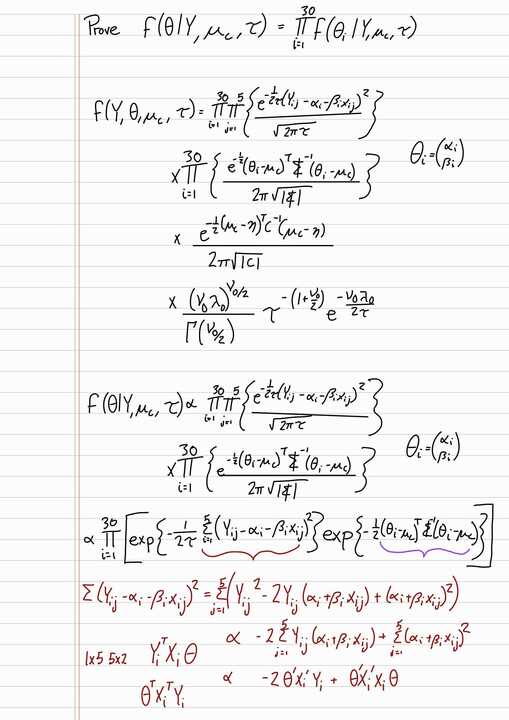 Prove f(θ|Y, μ_c, τ) = ∏_{i=1}^{30} f(θ_i | Y, μ_c, τ)
f(Y, θ, μ_c, τ) = ∏_{i=1}^{30} ∏_{j=1}^{5} { e^{-1/2τ (Y_ij - α_i - β_i x_ij)^2} / √(2πτ) }
× ∏_{i=1}^{30} { e^{-1/2 (θ_i - μ_c)^T Σ^{-1} (θ_i - μ_c)} / 2π√|Σ| } θ_i = (α_i β_i)
× e^{-1/2 (μ_c - η)^T C^{-1} (μ_c - η)} / 2π√|C|
× (ν_0 λ_0)^{ν_0/2} / Γ(ν_0/2) τ^{-(1 + ν_0/2)} e^{-ν_0 λ_0 / 2τ}
f(θ|Y, μ_c, τ) ∝ ∏_{i=1}^{30} ∏_{j=1}^{5} { e^{-1/2τ (Y_ij - α_i - β_i x_ij)^2} / √(2πτ) }
× ∏_{i=1}^{30} { e^{-1/2 (θ_i - μ_c)^T Σ^{-1} (θ_i - μ_c)} / 2π√|Σ| } θ_i = (α_i β_i)
∝ ∏_{i=1}^{30} [ exp{ -1/2τ Σ_{j=1}^{5} (Y_ij - α_i - β_i x_ij)^2 } exp{ -1/2 (θ_i - μ_c)^T Σ^{-1} (θ_i - μ_c) } ]
Σ(Y_ij - α_i - β_i x_ij)^2 = Σ_{j=1}^{5} (Y_ij^2 - 2Y_ij (α_i + β_i x_ij) + (α_i + β_i x_ij)^2)
∝ -2 Σ_{j=1}^{5} Y_ij (α_i + β_i x_ij) + Σ_{j=1}^{5} (α_i + β_i x_ij)^2
1x5 5x2 Y_i^T X_i θ
θ^T X_i^T Y_i ∝ -2θ'X_i'Y_i + θ'X_i'X_i θ